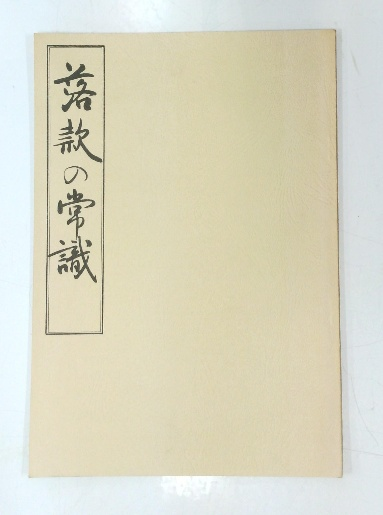 落款の常識